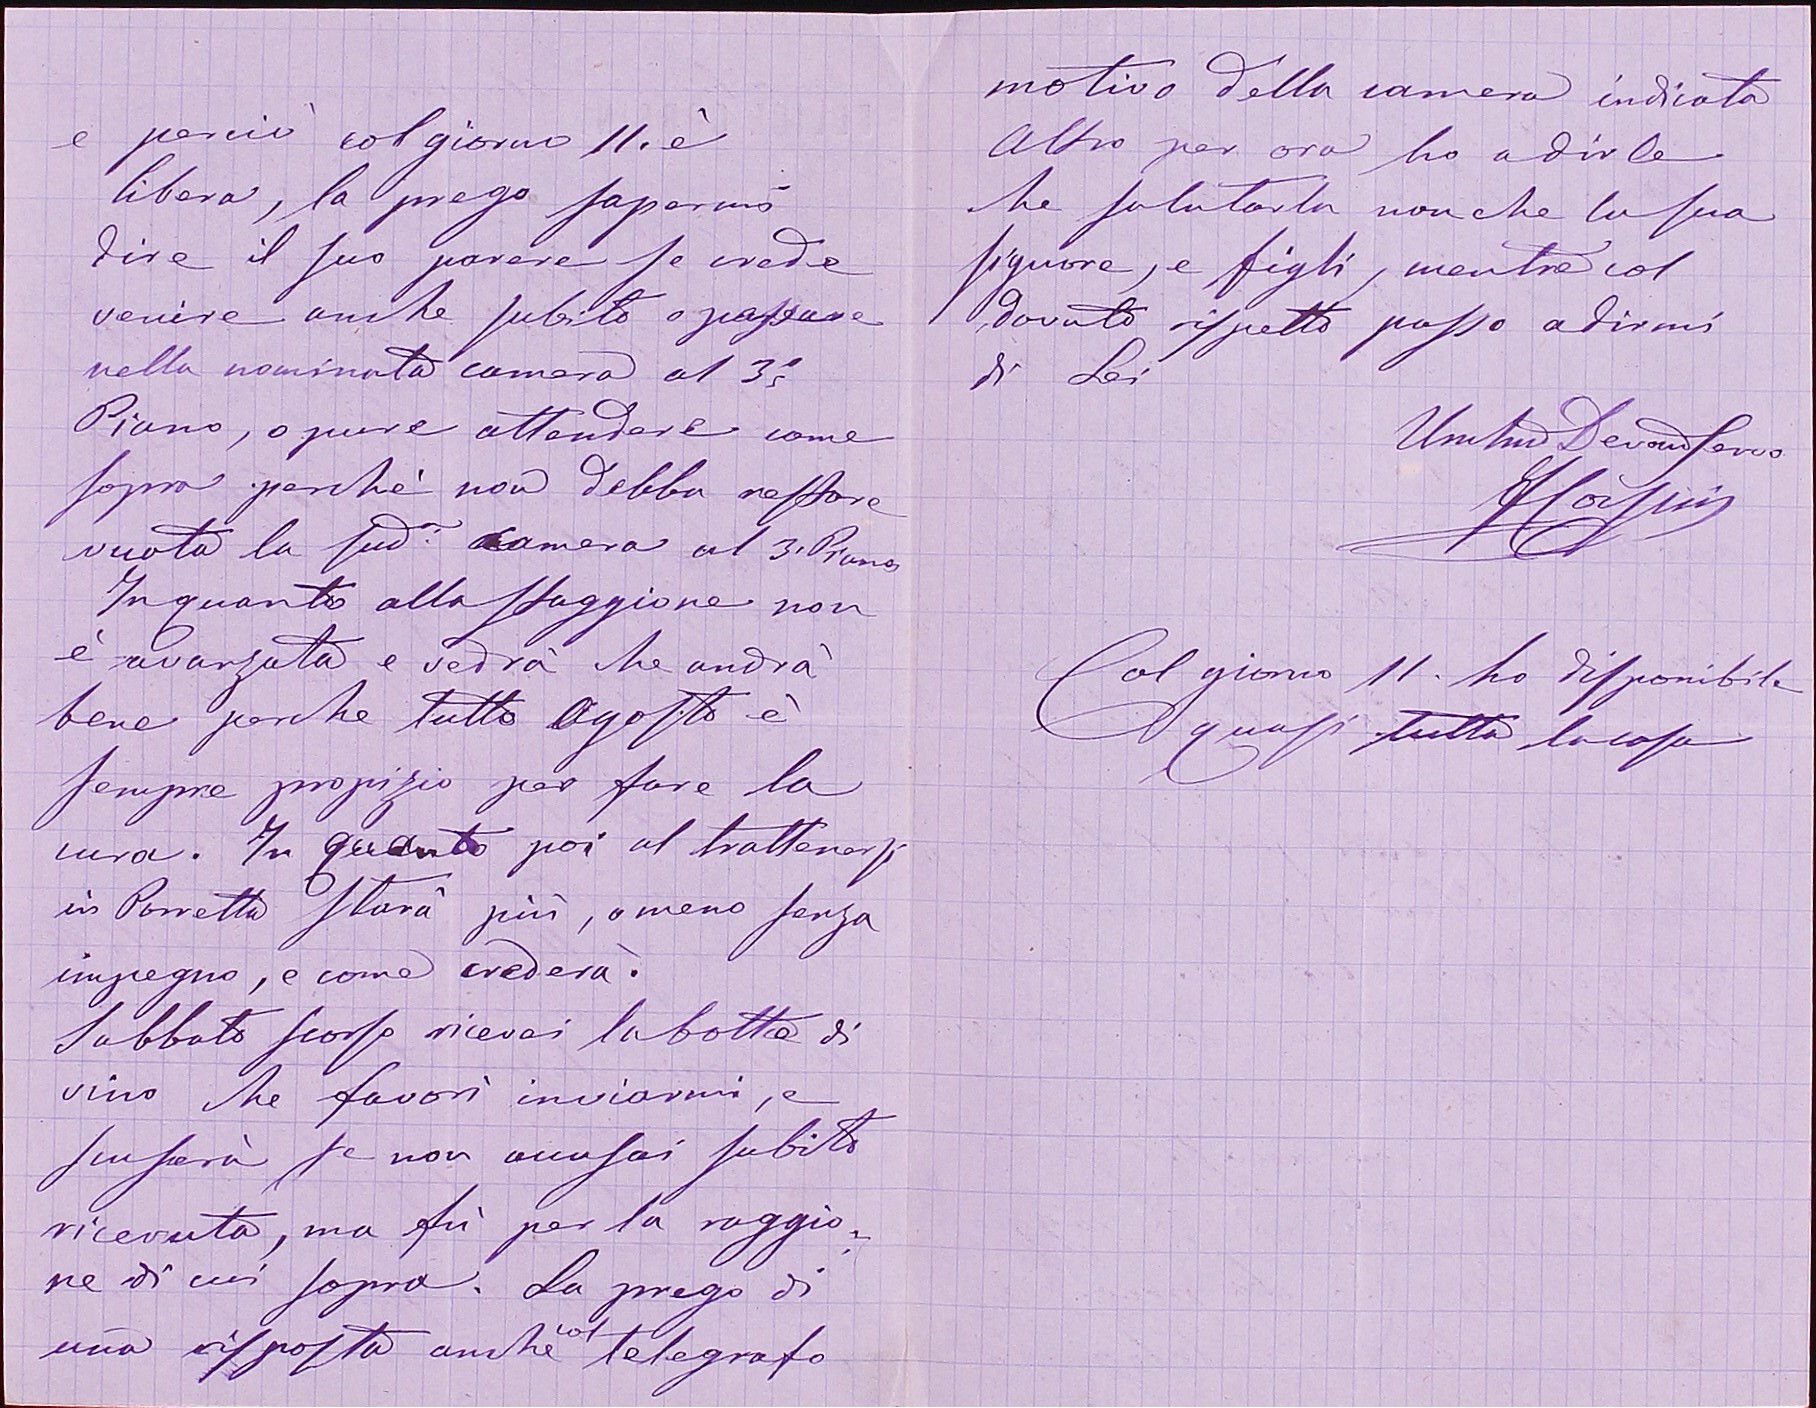 e perciò col giorno 11. è
libera, la prego sapermi
dire il suo parere se crede
venire anche subito o passare
nella nominata camera al 3.º
Piano, o pure attendere come
sopra perchè non debba restare
vuota la sud.ª camera al 3. Piano
In quanto alla staggione non
è avanzata e vedrà che andrà
bene perche tutto Agosto è
sempre propizio per fare la
cura. In quanto poi al trattenersi
in Porretta starà più, o meno senza
impegno, e come crederà.
Sabbato scorso ricevei la botte di
vino che favorì inviarmi, e
scuserà se non accusai subito
ricevuta, ma fù per la raggio=
ne di cui sopra. La prego di
una risposta anche col telegrafo
motivo della camera indicata
Altro per ora ho a dirle
che salutarla non che la sua
signora, e figli, mentre col
dovuto rispetto passo a dirmi
di Lei
Devo Servo
Col giorno 11. ho disponibile
quasi tutta la casa